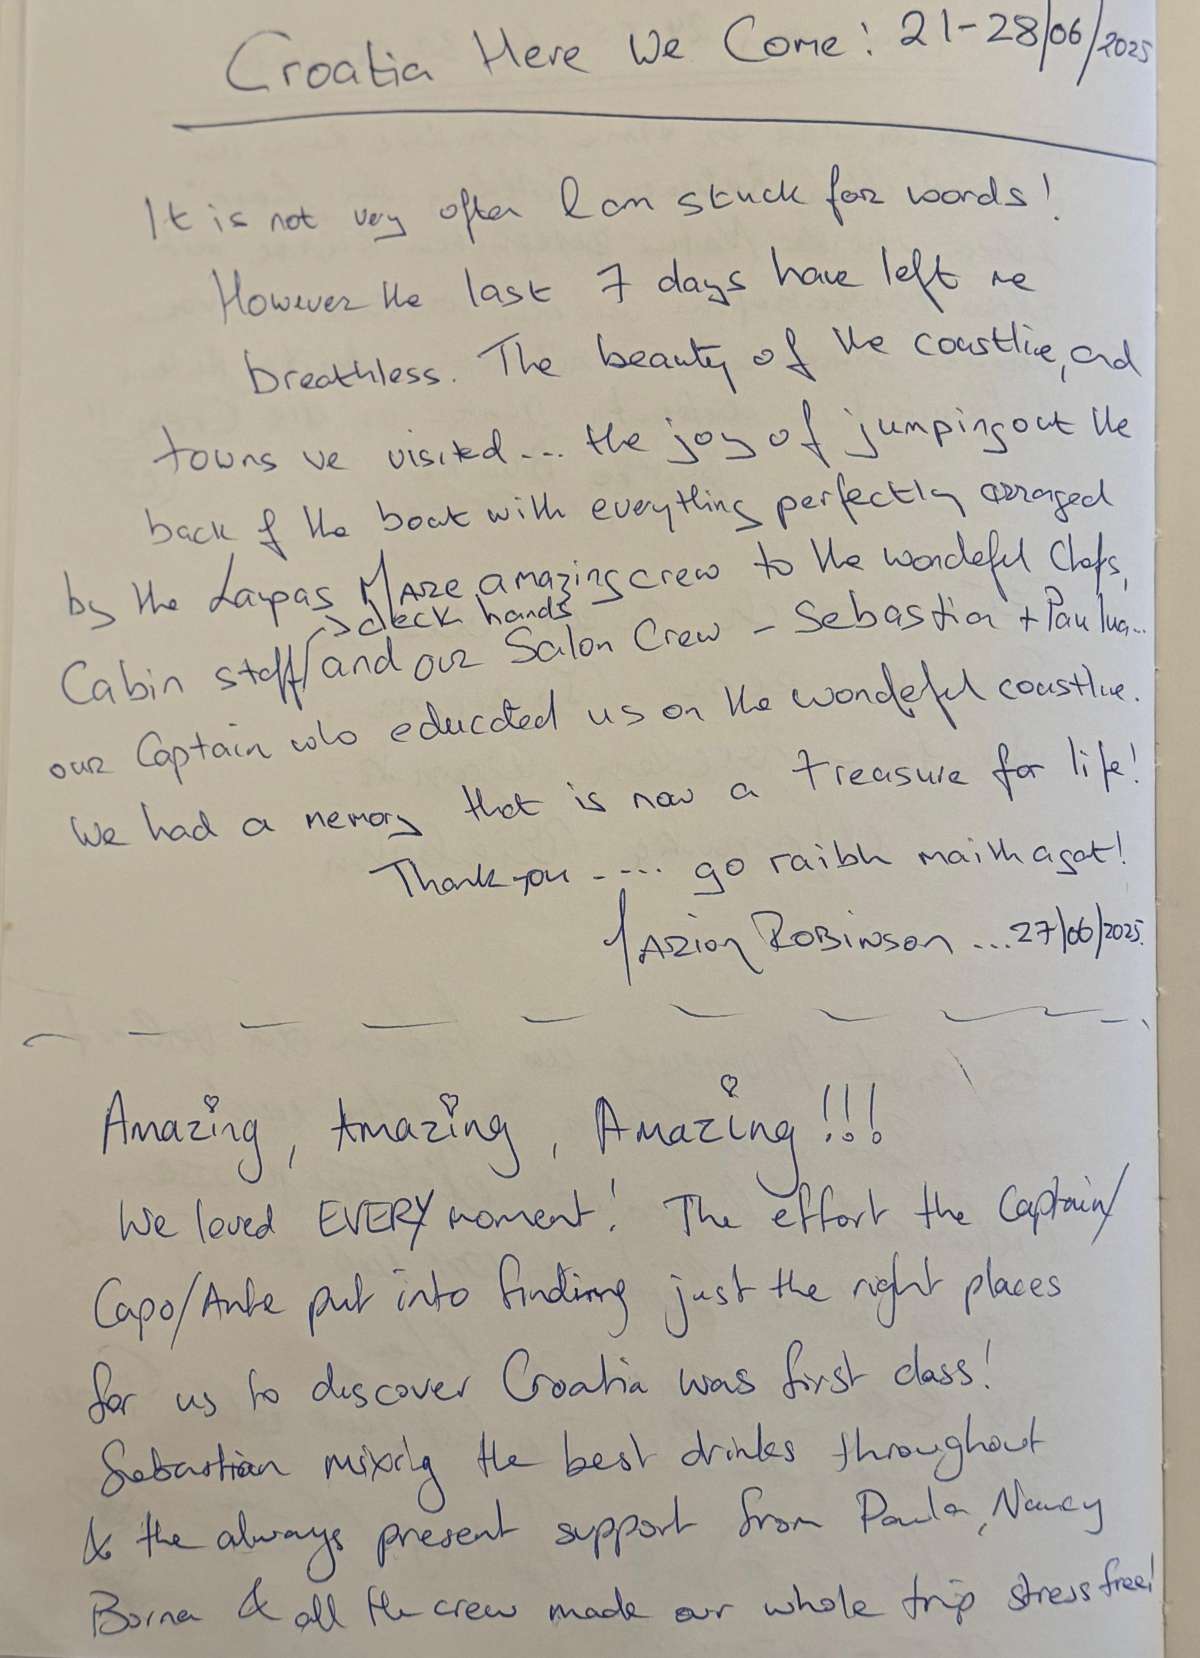 Croatia Here We Come: 21-28/06/2025
It is not very often I am stuck for words!
However the last 7 days have left me
breathless. The beauty of the coastline, and
towns we visited... the joy of jumping out the
back of the boat with everything perfectly arranged
by the Mare amazing crew to the wonderful Chefs,
deck hands
Cabin staff/and our Salon Crew - Sebastian +
our Captain who educated us on the wonderful coastline.
We had a memory that is now a treasure for life!
Thank you ..... go raibh maith agat!
Marion Robinson ...27/06/2025.
Amazing, Amazing, Amazing!!!
We loved EVERY moment! The effort the Captain/
Capo/Ante put into finding just the right places
for us to discover Croatia was first class!
Sebastian mixing the best drinks throughout
& the always present support from Paula, Nancy
Borna & all the crew made our whole trip stress free!